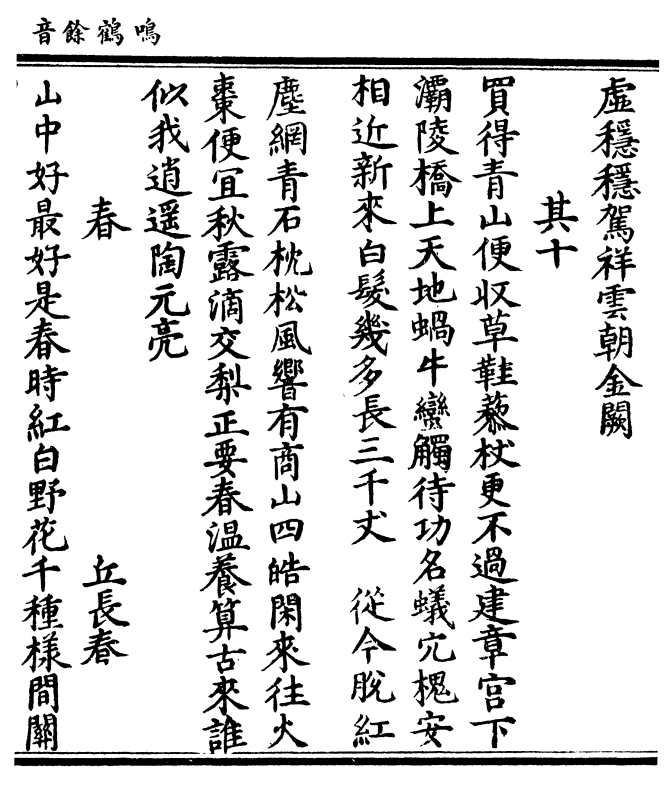 鳴鶴餘音
虛穩穩駕祥雲朝金闕
其十
買得青山便収草鞋藜杖更不過建章宫下
灞陵橋上天地蝸牛蠻觸待功名蟻穴槐安
相近新來白髮幾多長三千丈　從今脫紅
塵網青石枕松風響有商山四皓閑來往火
棗便冝秋露滴交梨正要春温養算古來誰
似我逍遥陶元亮
春　丘長春
山中好最好是春時紅白野花千種様間關